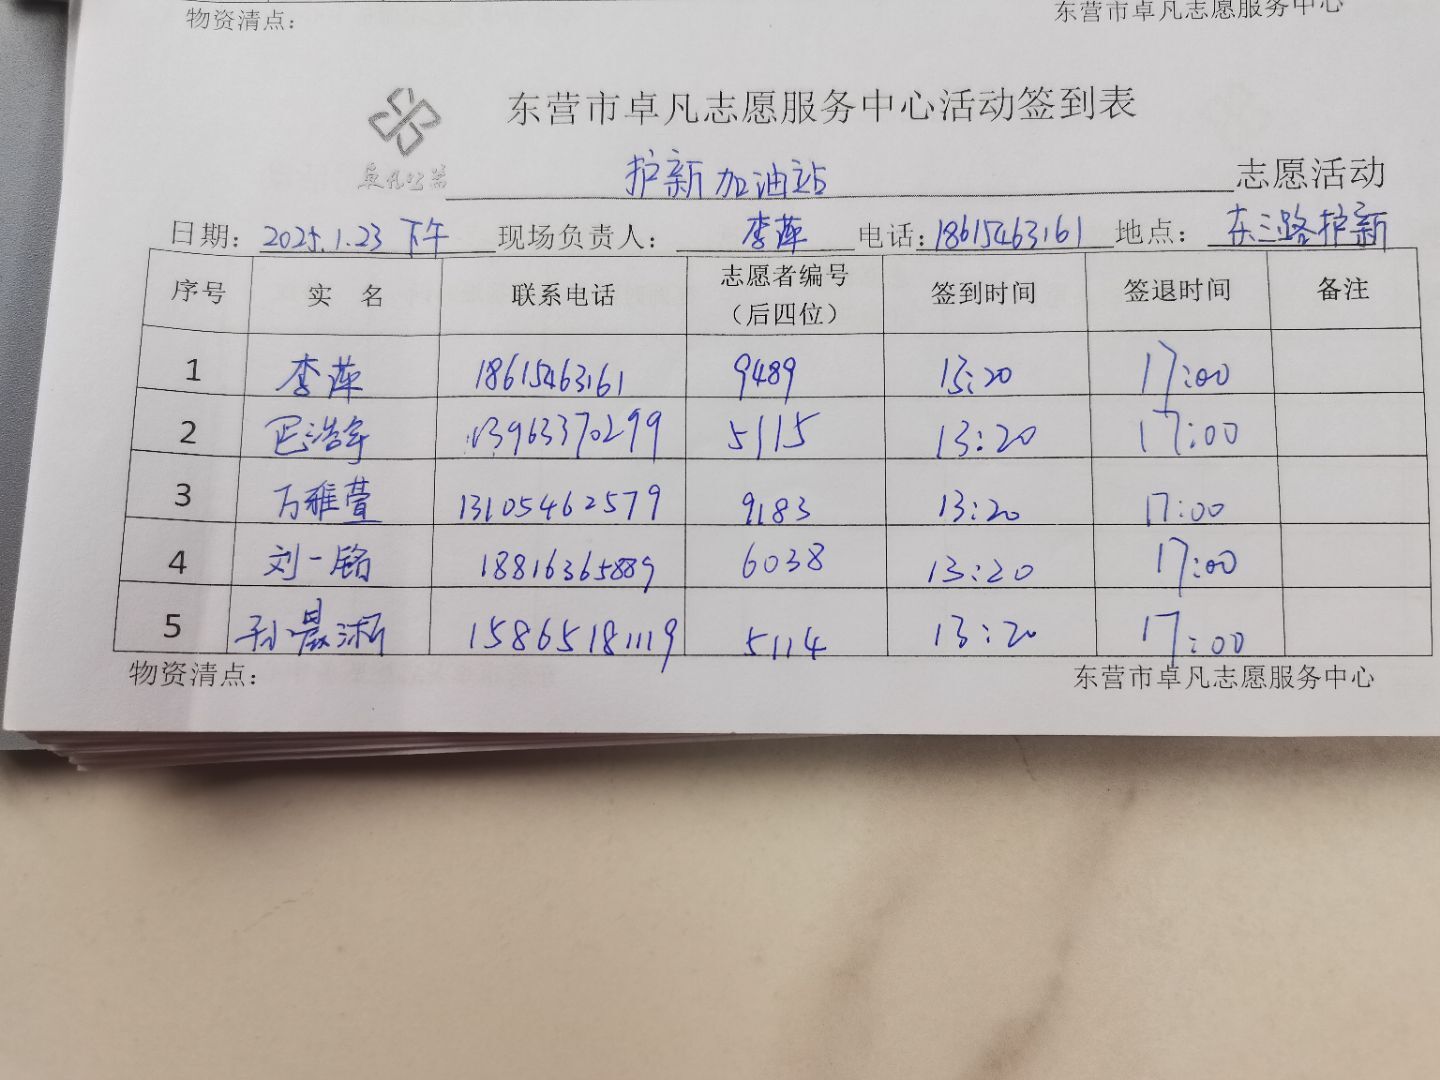 物资清点： 东营市卓凡志愿服务中心
东营市卓凡志愿服务中心活动签到表
卓凡公益
护新加油站 志愿活动
日期：2025.1.23 下午 现场负责人：李萍 电话：18615463161 地点：东三路护新
序号 实 名 联系电话 志愿者编号（后四位） 签到时间 签退时间 备注
1 李萍 18615463161 9489 13:20 17:00
2 巴浩宇 13963370299 5115 13:20 17:00
3 万雅萱 13105462579 9183 13:20 17:00
4 刘一铭 18816365889 6038 13:20 17:00
5 孙晨 15865181119 5114 13:20 17:00
物资清点： 东营市卓凡志愿服务中心